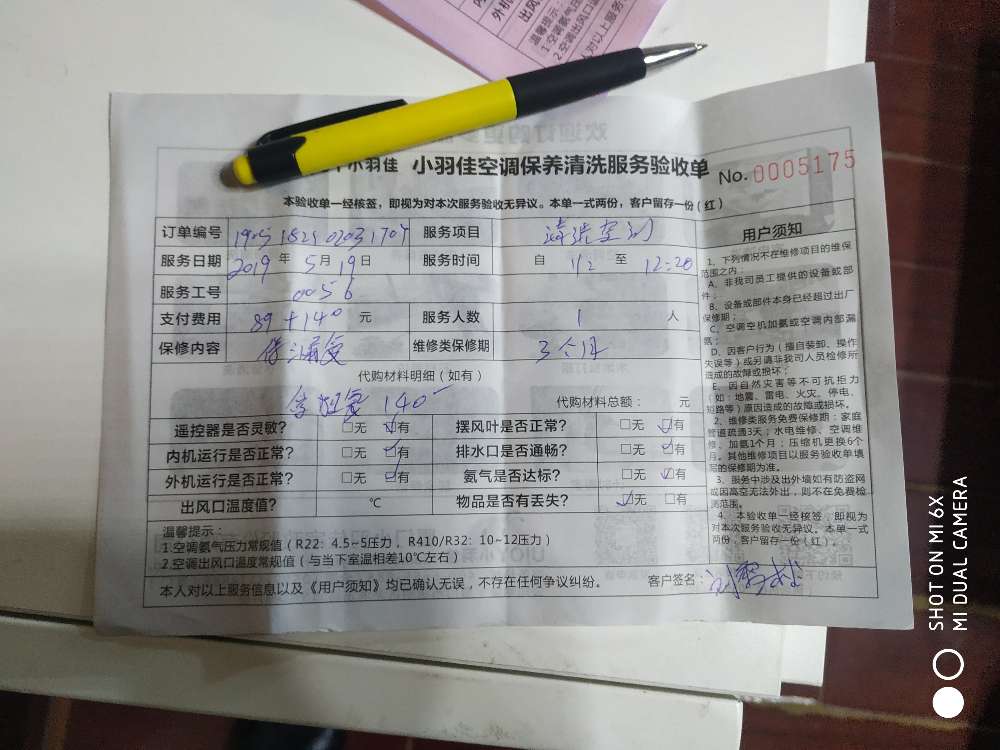 外机
出风口
温馨提示：
1.空调氨气压
2.空调出风口温
人对以上服务
小羽佳 小羽佳空调保养清洗服务验收单 No.0005175
本验收单一经核签，即视为对本次服务验收无异议。本单一式两份，客户留存一份（红）
订单编号 服务项目 清洗空调
服务日期 2019 年 5 月 19 日 服务时间 自 至 12:20
服务工号 0056
支付费用 89+140 元 服务人数 1 人
保修内容 维修类保修期 3个月
代购材料明细（如有）
140 代购材料总额： 元
遥控器是否灵敏？ □无 ☑有 摆风叶是否正常？ □无 ☑有
内机运行是否正常？ □无 ☑有 排水口是否通畅？ □无 ☑有
外机运行是否正常？ □无 ☑有 氨气是否达标？ □无 ☑有
出风口温度值？ ℃ 物品是否有丢失？ ☑无 □有
温馨提示：
1.空调氨气压力常规值（R22：4.5~5压力，R410/R32：10~12压力）
2.空调出风口温度常规值（与当下室温相差10℃左右）
本人对以上服务信息以及《用户须知》均已确认无误，不存在任何争议纠纷。 客户签名：
用户须知
1、下列情况不在维修项目的维保
范围之内：
A、非我司员工提供的设备或部
件；
B、设备或部件本身已经超过出厂
保修期；
C、空调空机加氨或空调内部漏
氨；
D、因客户行为（擅自装卸、操作
失误等）或另请非我司人员检修所
造成的故障或损坏；
E、因自然灾害等不可抗拒力
（如：地震、雷电、火灾、停电、
短路等）原因造成的故障或损坏。
2、维修类服务免费保修期：家庭
管道疏通3天；水电维修、空调维
修、加氨1个月；压缩机更换6个
月。其他维修项目以服务验收单填
写的保修期为准。
3、服务中涉及出外墙如有防盗网
或因高空无法外出，则不在免费检
测范围。
4、本验收单一经核签，即视为
对本次服务验收无异议。本单一式
两份，客户留存一份（红）。
SHOT ON MI 6X
MI DUAL CAMERA